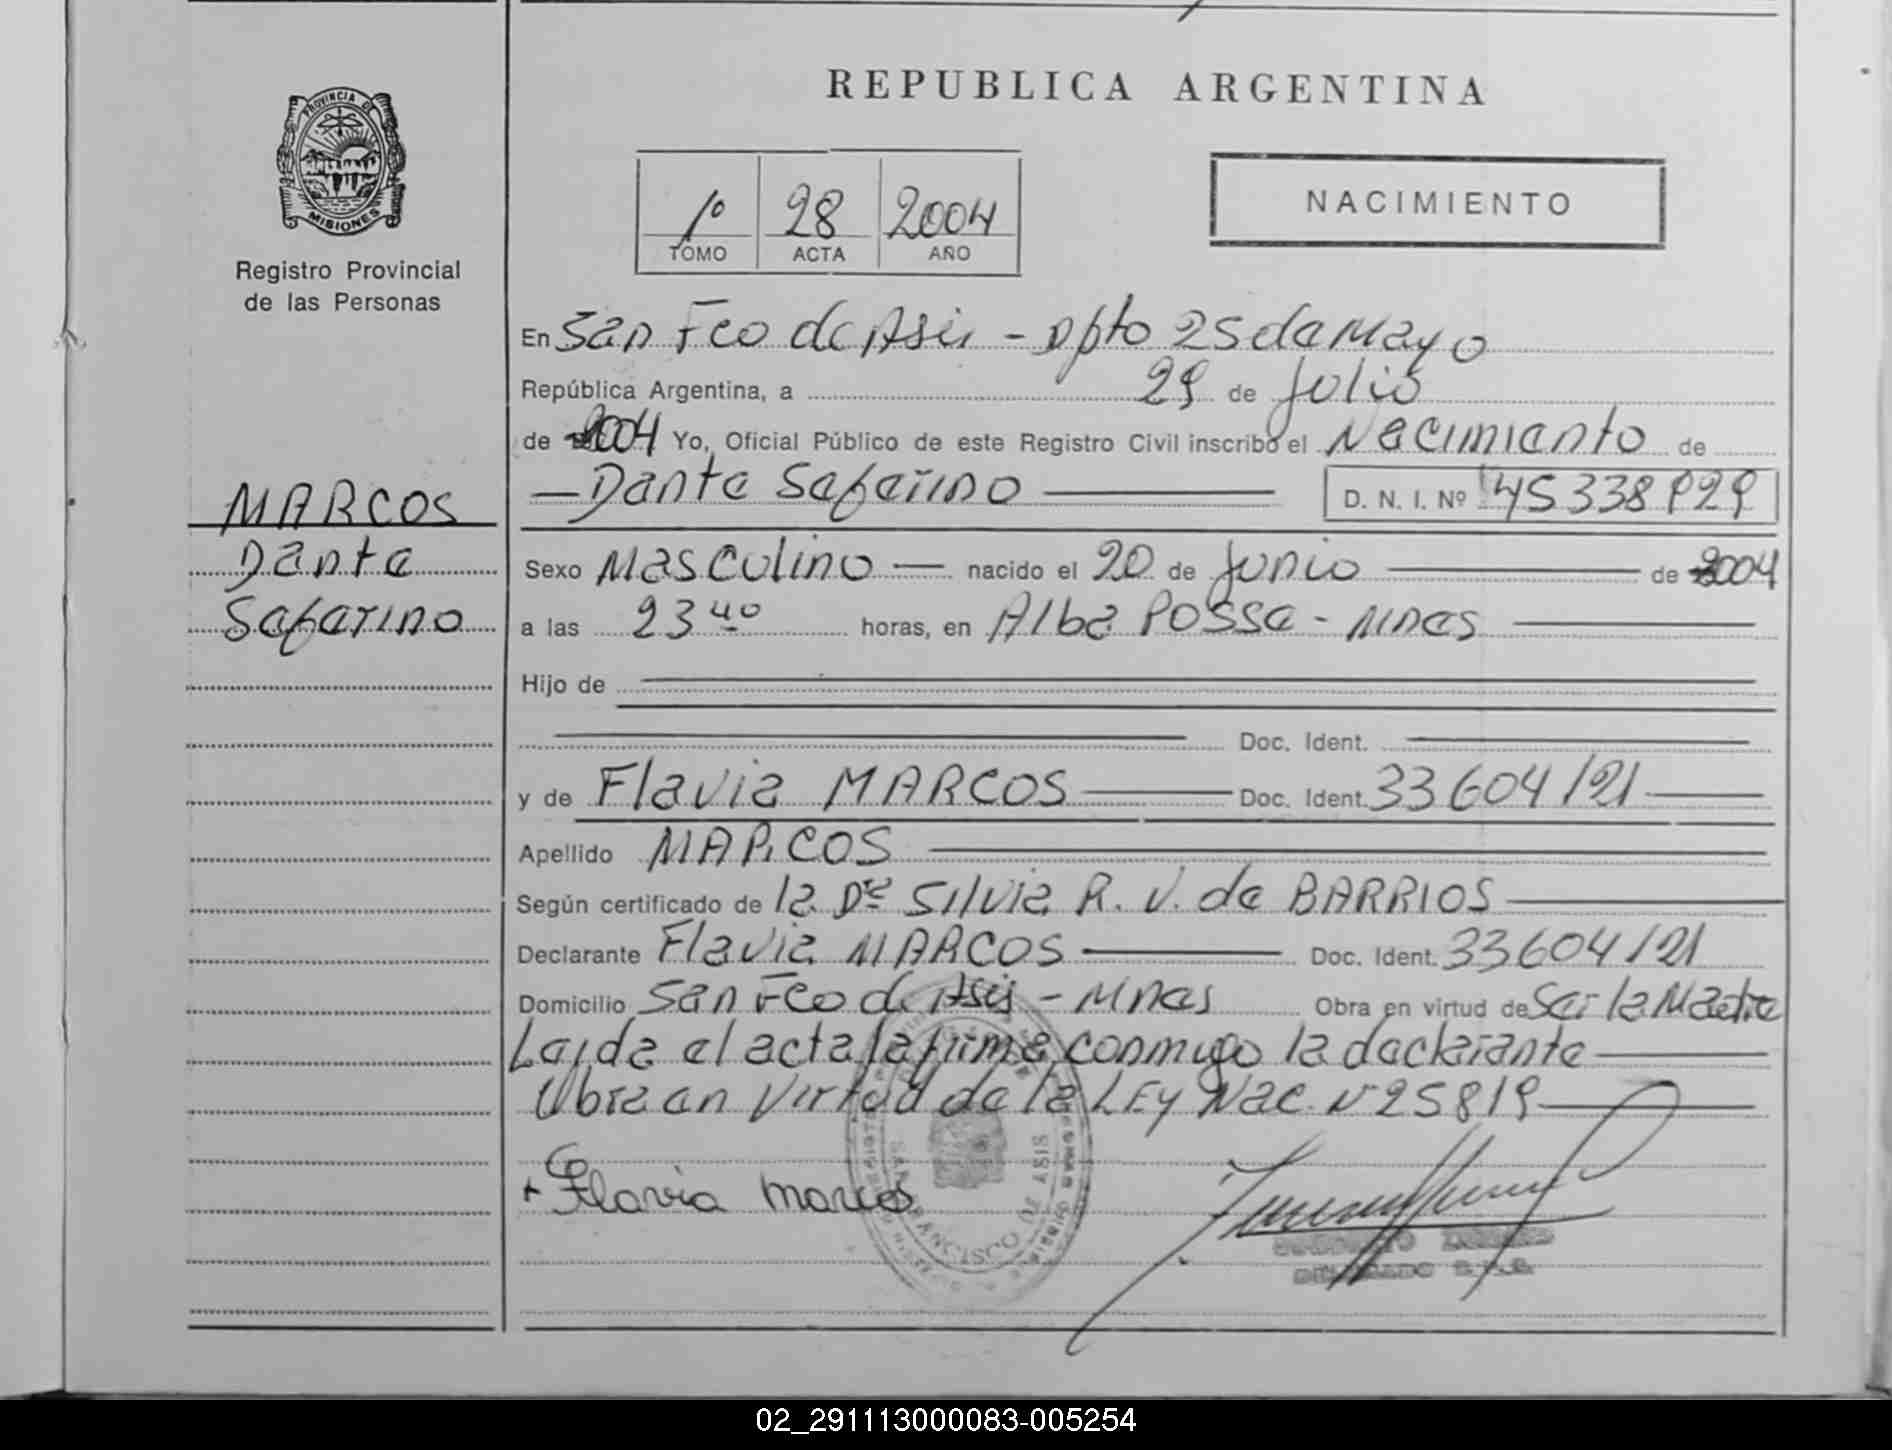 PROVINCIA DE
MISIONES
Registro Provincial
de las Personas
MARCOS
Dante
Seferino
REPUBLICA ARGENTINA
1º 28 2004
TOMO ACTA AÑO
NACIMIENTO
En San Fco de Asis - Dpto 25 de Mayo
República Argentina, a 29 de Julio
de 2004 Yo, Oficial Público de este Registro Civil inscribo el Nacimiento de
Dante Seferino D. N. I. Nº 45338929
Sexo Masculino nacido el 20 de Junio de 2004
a las 23 40 horas, en Alba Posse - Mnes
Hijo de
Doc. Ident.
y de Flavia MARCOS Doc. Ident. 33604121
Apellido MARCOS
Según certificado de la Dra Silvia R. V. de BARRIOS
Declarante Flavia MARCOS Doc. Ident. 33604121
Domicilio San Fco de Asis - Mnes Obra en virtud de Ser la Madre
Leida el acta la firma conmigo la declarante
Obra en Virtud de la LEy Nac. Nº 25819
Flavia Marcos
SAN FRANCISCO DE ASIS
02_291113000083-005254